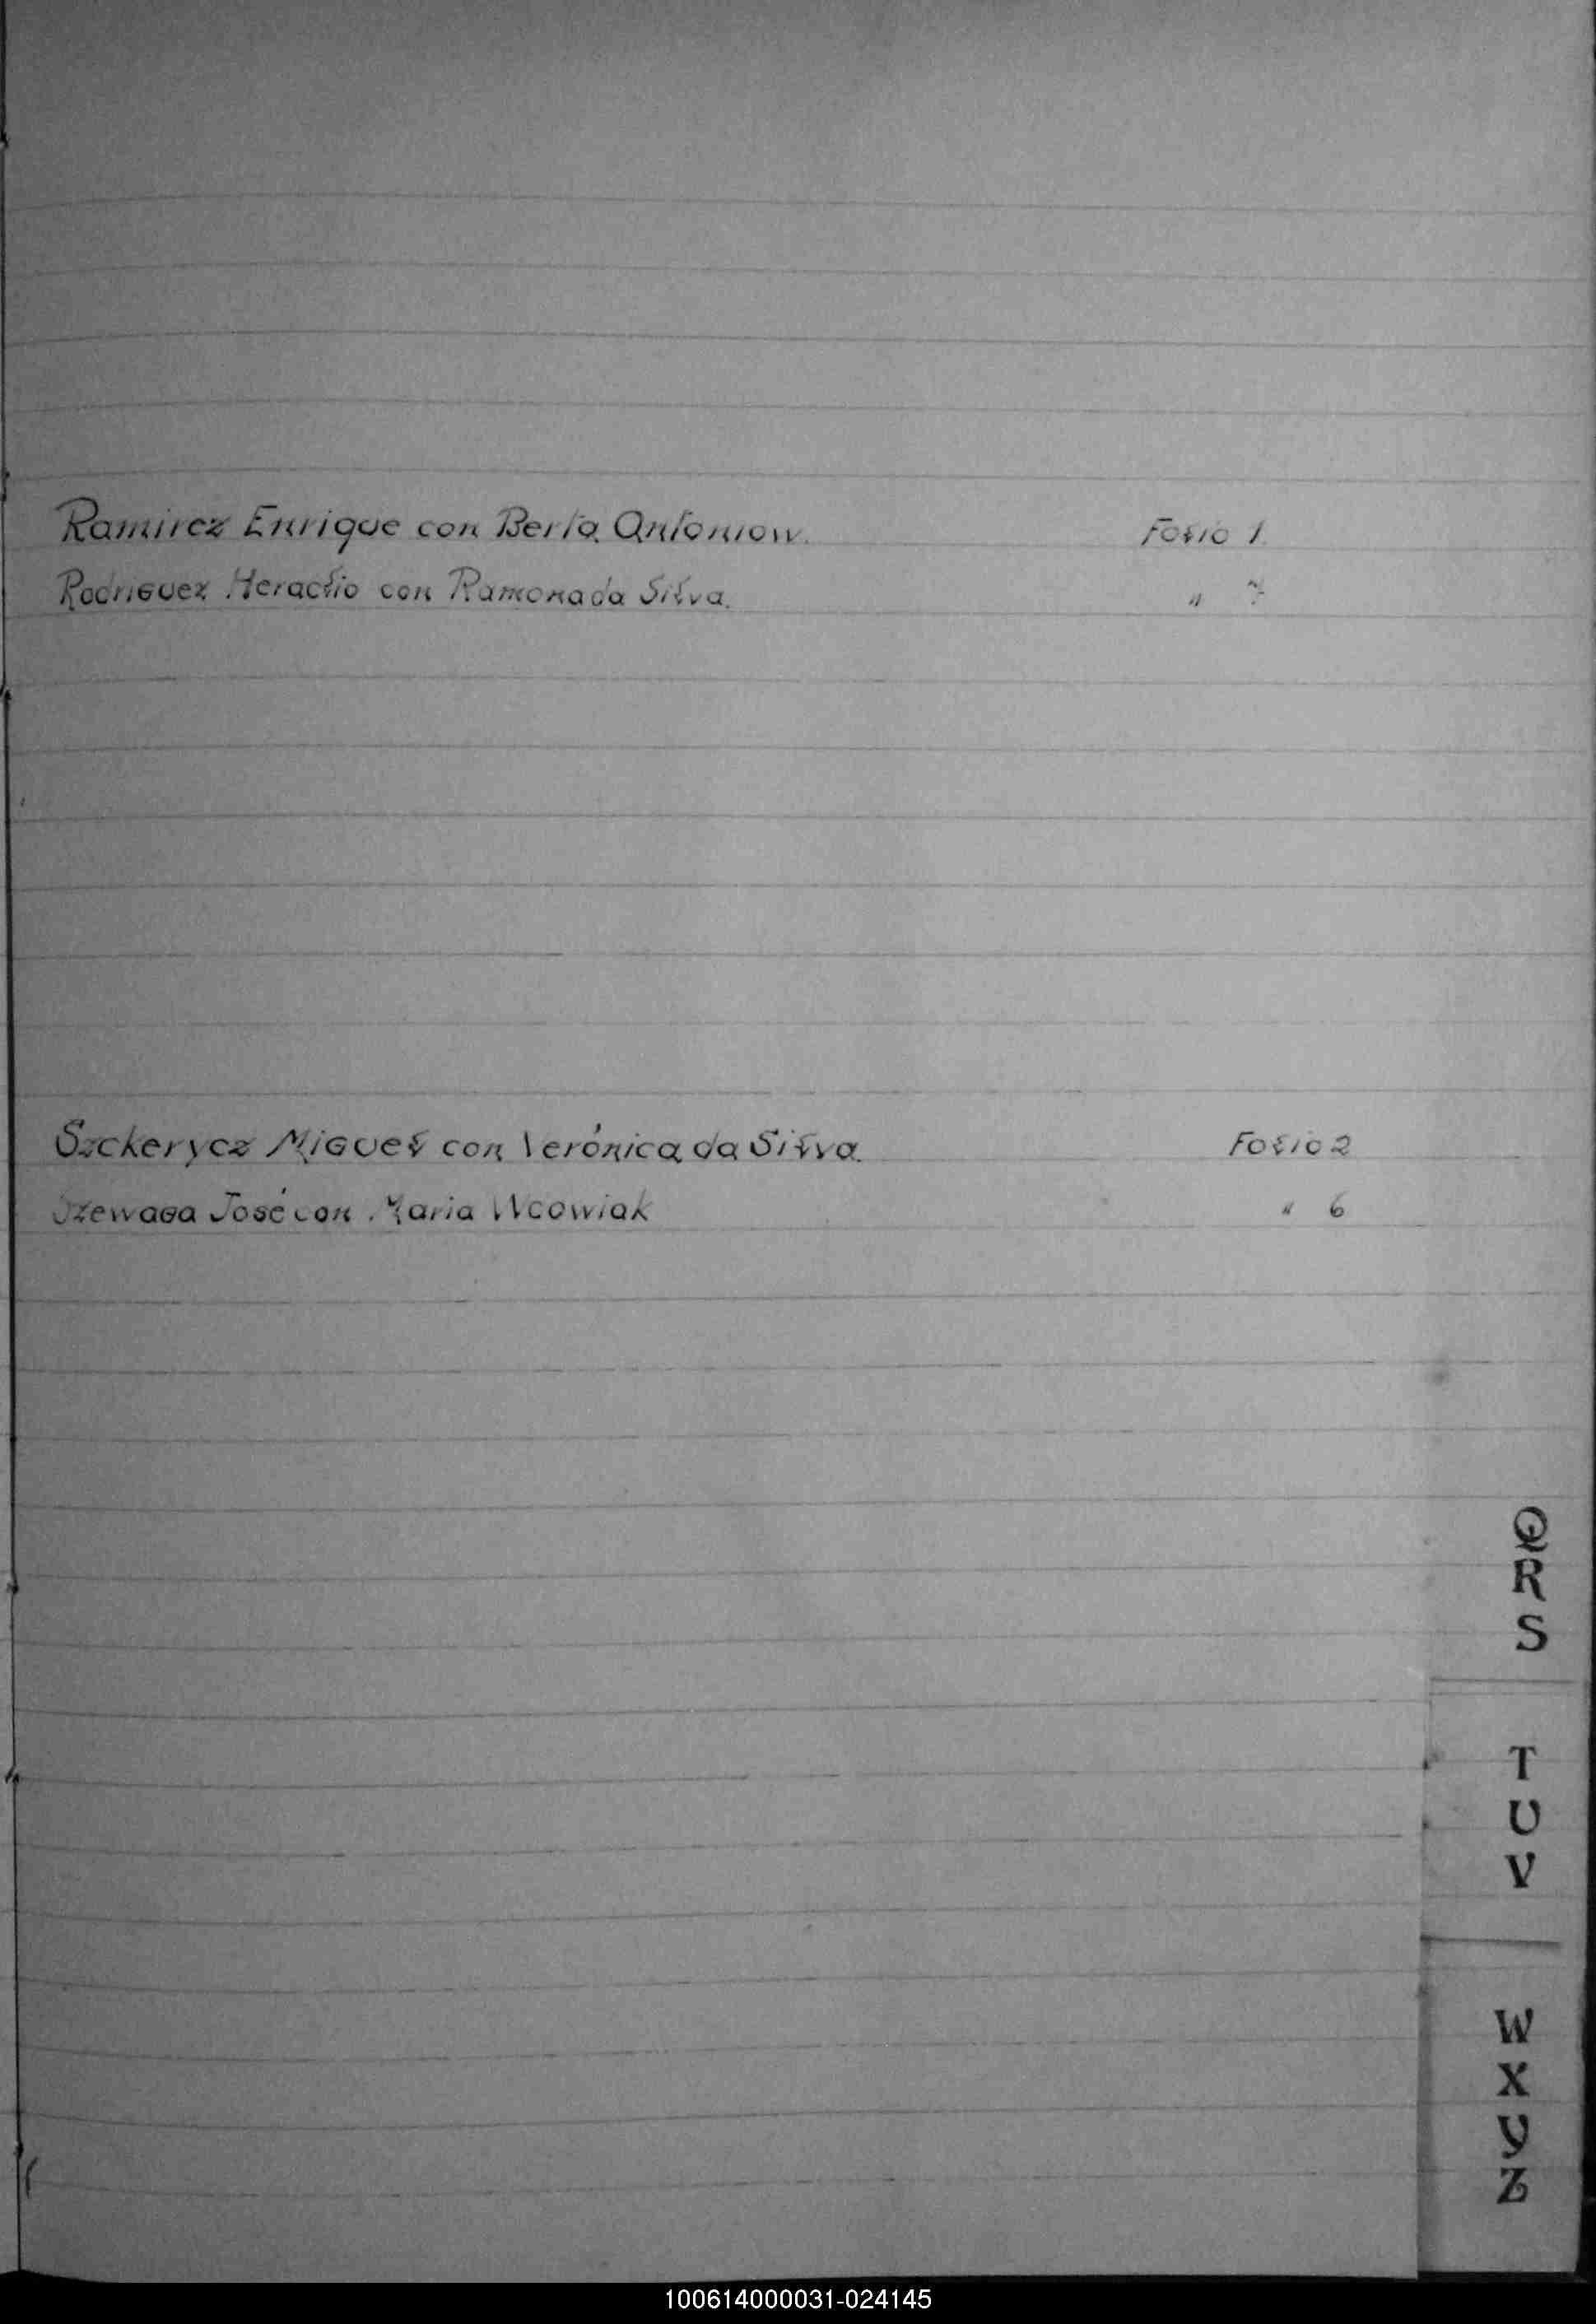 Ramirez Enrique con Berta Antoniow. Folio 1.
Rodriguez Heraclio con Ramona da Silva. " 7
Szckerycz Miguel con Verónica da Silva. Folio 2
Szewaga José con Maria Wcowiak " 6
Q
R
S
T
U
V
W
X
Y
Z
100614000031-024145